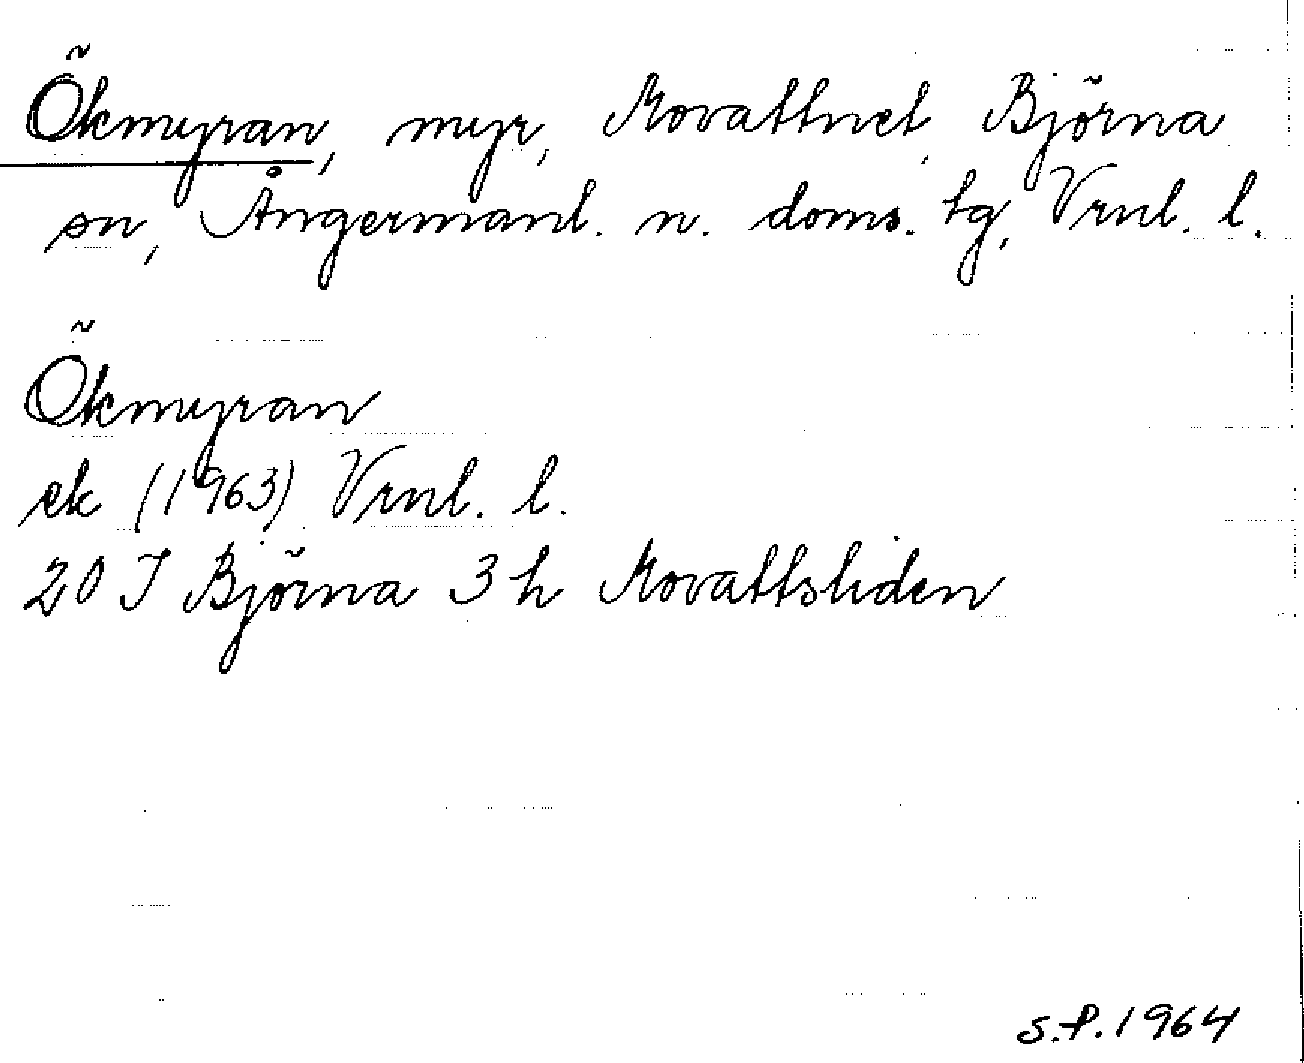 Ökmyran, myr, Movattnet, Björna
sn, Ångermanl. n. doms. tg, Vrnl. l.
Ökmyran
ek (1963) Vrnl. l.
20 I Björna 3 h Movattsliden
S.P. 1964